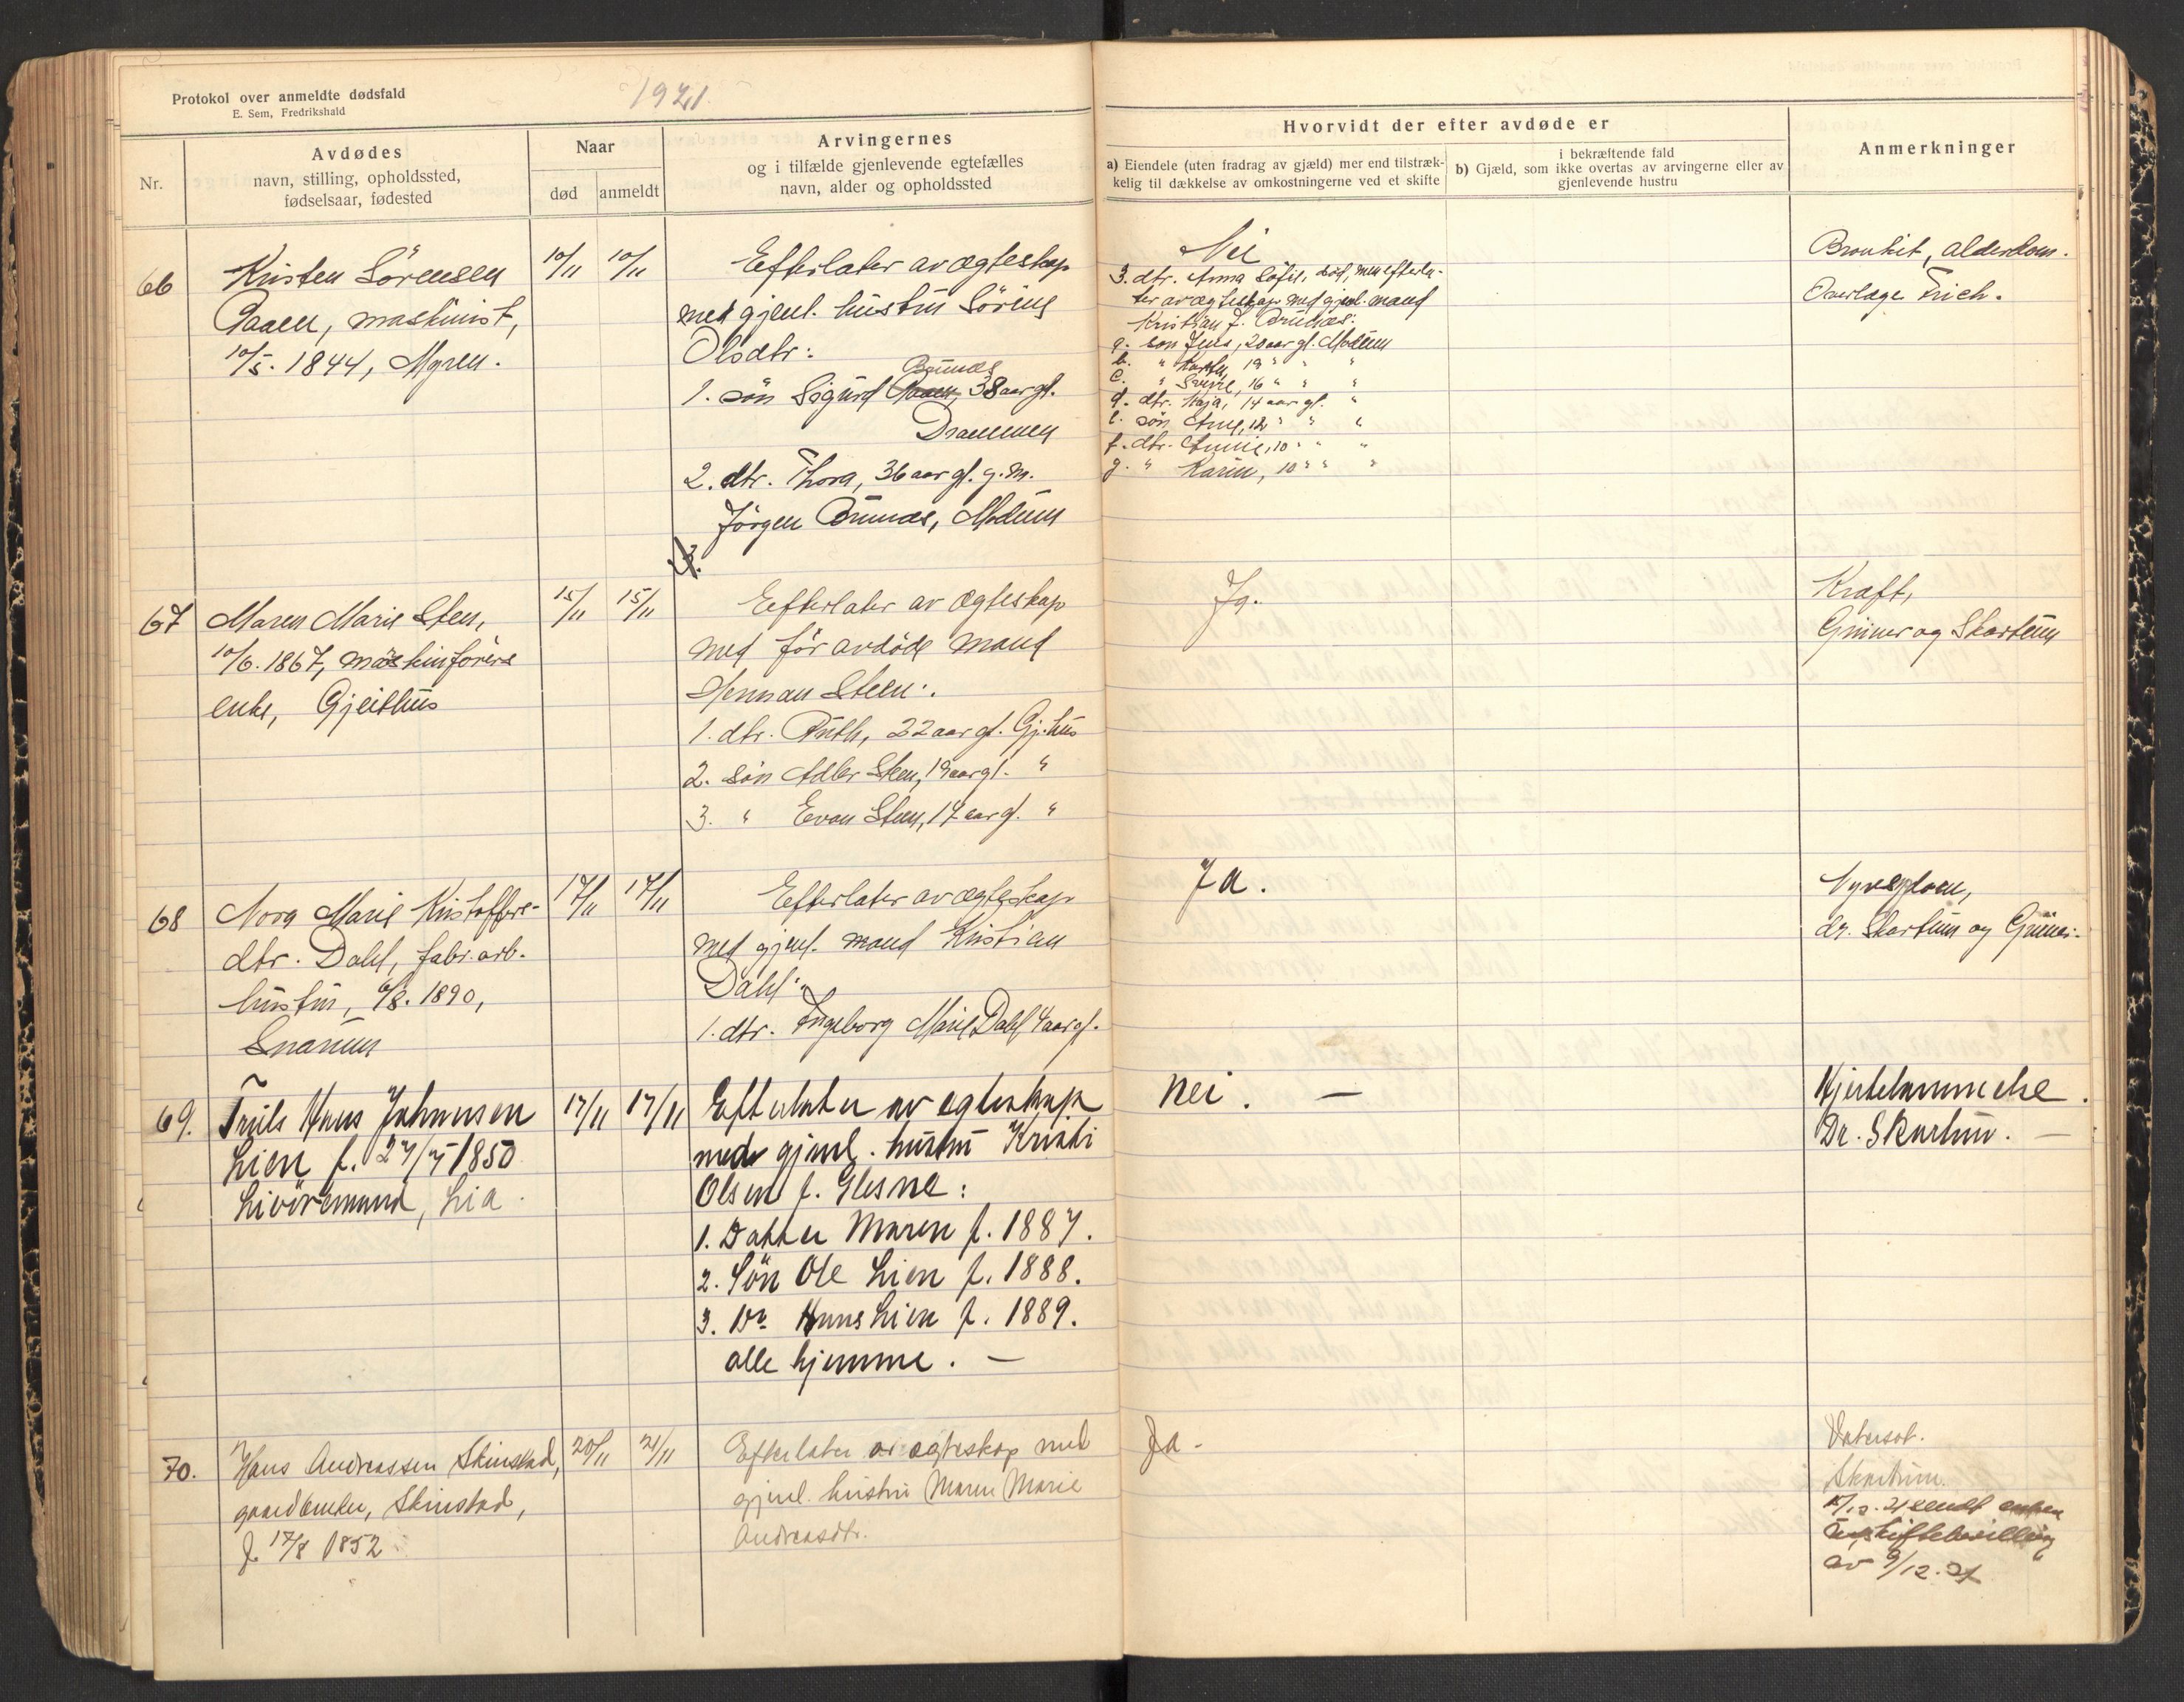 Protokol over anmeldte dødsfald
E. Sem, Fredrikshald
1921.
Nr.
Avdødes
navn, stilling, opholdssted,
fødselsaar, fødested
Naar
død
anmeldt
Arvingernes
og i tilfælde gjenlevende egtefælles
navn, alder og opholdssted
Hvorvidt der efter avdøde er
a) Eiendele (uten fradrag av gjæld) mer end tilstræk-
kelig til dækkelse av omkostningerne ved et skifte
i bekræftende fald
b) Gjæld, som ikke overtas av arvingerne eller av
gjenlevende hustru
Anmerkninger
66
Kristen Sörensen
Aaen, maskinist,
10/5. 1844, Myren.
10/11 10/11
Efterlater av ægteskap
med gjenl. hustru Sörine
Olsdtr:
Brunæs
1. sön Sigurd Aaen, 38 aar gl.
Drammen
2. dtr. Thora, 36 aar gl. g. m.
Jörgen Brunæs, Modum
Nei
3. dtr. Anna Sofie, död, men efterla-
ter av ægteskap med gjenl. mand
Kristian J. Brunæs:
a. sön Jens, 20 aar gl. Modum
b. " 19 " " "
c. " Sverre, 16 " " "
d. dtr. Kaja, 14 aar gl. "
e. sön Arne, 12 " " "
f. dtr. Annie, 10 " " "
g. " Karin, 10 " " "
Bronkit, alderdom.
Overlæge Frich.
67
Maren Marie Steen,
10/6. 1867, maskinförers
enke, Gjeithus
15/11 15/11
Efterlater av ægteskap
med för avdöde mand
Herman Steen:
1. dtr. Ruth, 22 aar gl. Gj.hus
2. sön Adler Steen, 19 aar gl. "
3. " Evan Steen, 17 aar gl. "
Ja.
Kræft,
Gruner og Skartum
68
Nora Marie Kristoffers-
dtr. Dahl, fabr. arb.
hustru, 6/8. 1890,
Snarum
17/11 17/11
Efterlater av ægteskap
med gjenl. mand Kristian
Dahl:
1. dtr. Ingeborg Marie Dahl 4 aar gl.
Ja.
dr. Skartum og Gruner.
69.
Truls Hans Johannsen
Lien f. 27/7 1850
Livöremand, Lia.
17/11 17/11
Efterlater av egteskap
med gjenl. hustru Kristi
Olsen f. Glesne:
1. Datter Maren f. 1887.
2. Sön Ole Lien f. 1888.
3. Do Hans Lien f. 1889.
alle hjemme. —
nei. —
Hjertelammelse.
Dr. Skartum. —
70.
Hans Andreassen Skinstad,
gaardbruker, Skinstad,
f. 17/8 1852
20/11 21/11
Efterlater av egteskap med
gjenl. hustru Maren Marie
Andreasdtr.
Ja -
Vatersot.
Skartum.
/12. 21 sendt enken
uskiftebevilling
av 9/12. 21